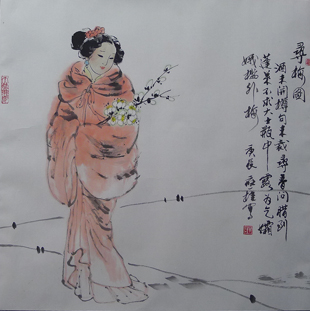 尋梅图
酒未開樽句未裁尋春问腊到
蓬莱不求大士瓶中露为乞孀
娥槛外梅 庚辰